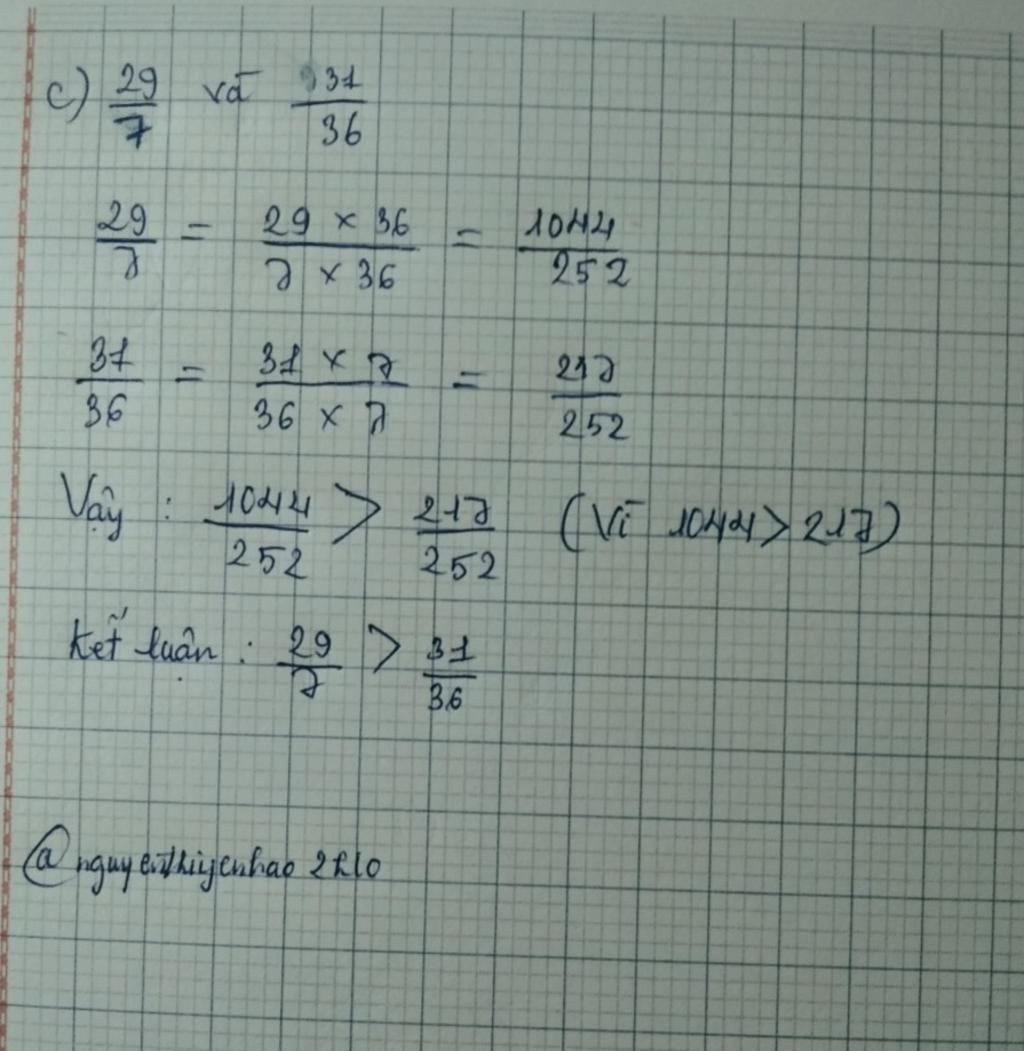 c) 29/7 và 31/36
29/7 = 29 × 36 / 7 × 36 = 1044/252
31/36 = 31 × 7 / 36 × 7 = 217/252
Vậy : 1044/252 > 217/252 (Vì 1044 > 217)
Kết luận : 29/7 > 31/36
@nguyenthiyenhao 2k10